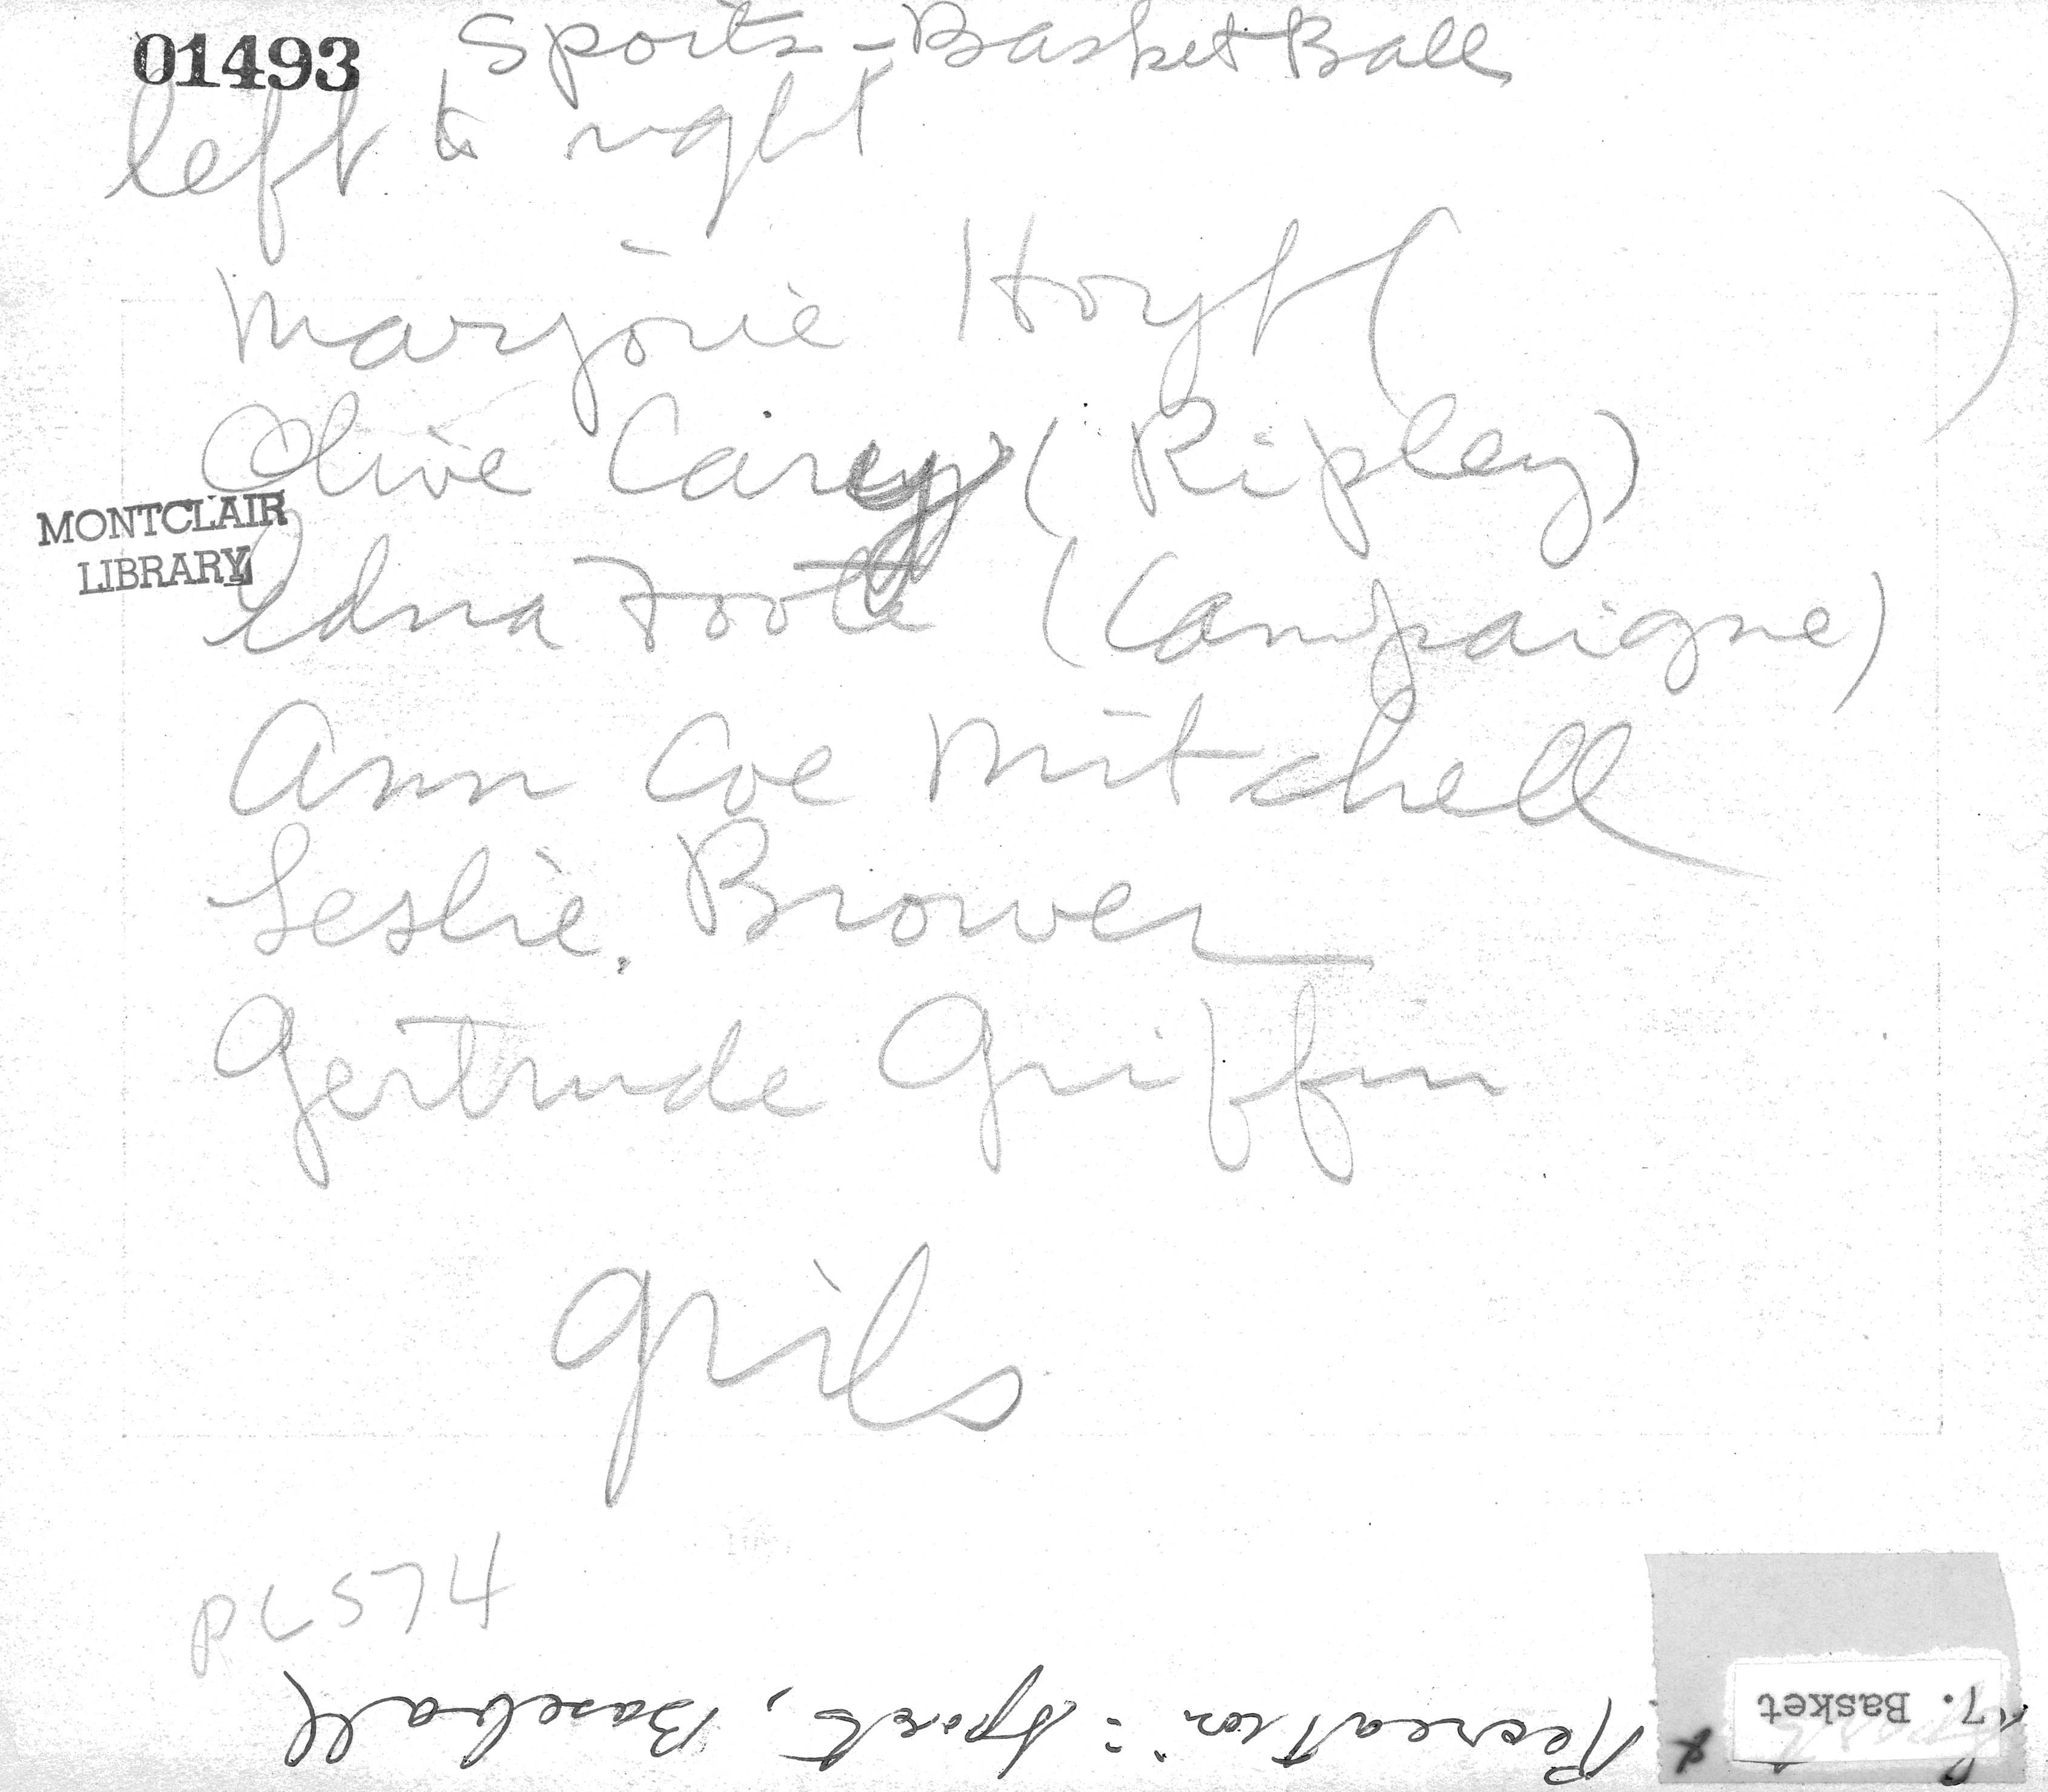 01493 Sports - BasketBall
left to right
Marjorie Hoyt ( )
Olive Carey (Ripley)
MONTCLAIR
LIBRARY
Edna Foote (Campaigne)
Ann Coe Mitchell
Leslie Brower
Gertrude Griffin
Girls
PC574
7. Basket
Recreation: Sports, Baseball